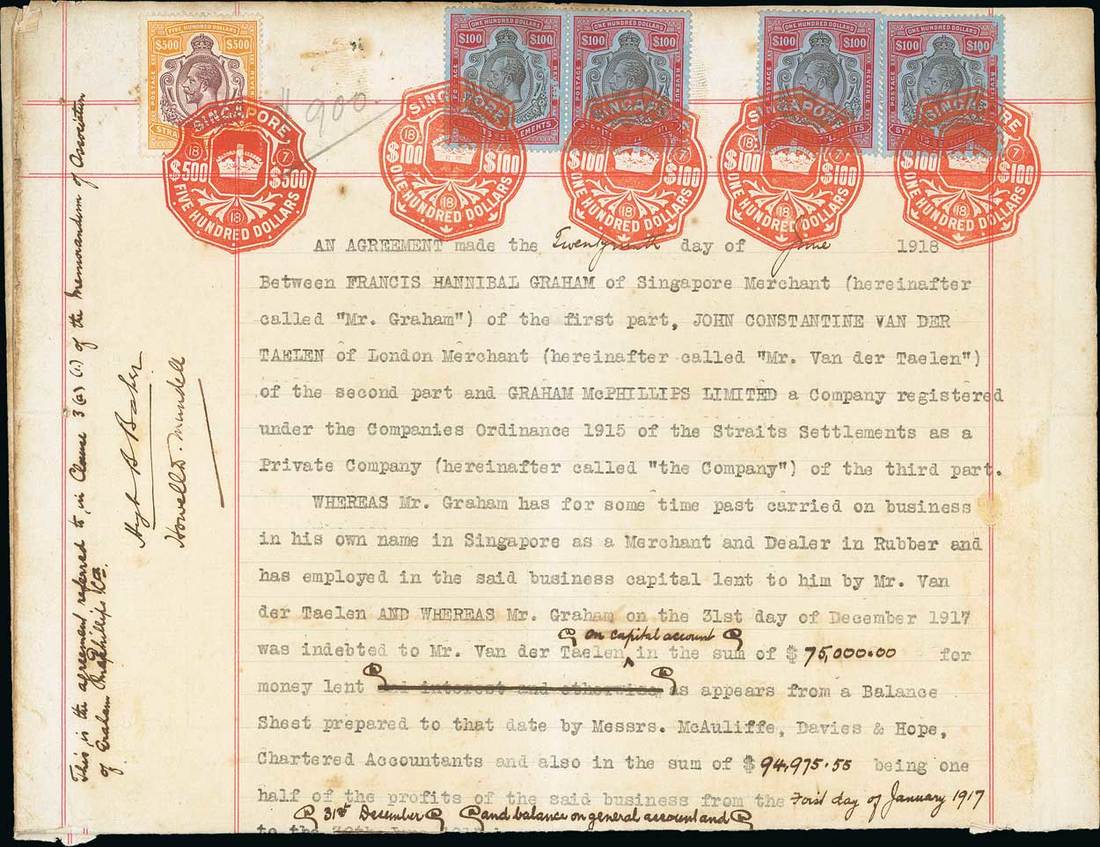 FIVE HUNDRED DOLLARS
$500 $500
POSTAGE REVENUE
STRA
ONE HUNDRED DOLLARS
$100 $100
ONE HUNDRED DOLLARS
$100 $100
ONE HUNDRED DOLLARS
$100 $100
ONE HUNDRED DOLLARS
$100 $100
$ 900.
SINGAPORE
18 7
$500 $500
18
FIVE HUNDRED DOLLARS
SINGAPORE
18 7
$100 $100
18
ONE HUNDRED DOLLARS
SINGAPORE
18 7
$100 $100
18
ONE HUNDRED DOLLARS
SINGAPORE
18 7
$100 $100
18
ONE HUNDRED DOLLARS
SINGAPORE
18 7
$100 $100
18
ONE HUNDRED DOLLARS
AN AGREEMENT made the day of June 1918
Between FRANCIS HANNIBAL GRAHAM of Singapore Merchant (hereinafter
called "Mr. Graham") of the first part, JOHN CONSTANTINE VAN DER
TAELEN of London Merchant (hereinafter called "Mr. Van der Taelen")
of the second part and GRAHAM McPHILLIPS LIMITED a Company registered
under the Companies Ordinance 1915 of the Straits Settlements as a
Private Company (hereinafter called "the Company") of the third part.
WHEREAS Mr. Graham has for some time past carried on business
in his own name in Singapore as a Merchant and Dealer in Rubber and
has employed in the said business capital lent to him by Mr. Van
der Taelen AND WHEREAS Mr. Graham on the 31st day of December 1917
on capital account
was indebted to Mr. Van der Taelen in the sum of $ 75,000.00 for
money lent and interest and otherwise as appears from a Balance
Sheet prepared to that date by Messrs. McAuliffe, Davies & Hope,
Chartered Accountants and also in the sum of $ 94,975.55 being one
half of the profits of the said business from the First day of January 1917
31st December and balance on general account and
to the
This is the agreement referred to in Clause 3 (a) (1) of the Memorandum of Association
of Graham Macphillips